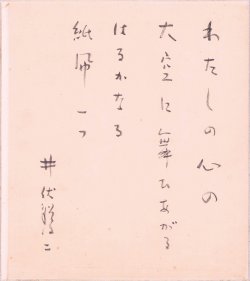 わたしの心の
大空に舞ひあがる
はるかなる
紙鳶一つ
井伏鱒二